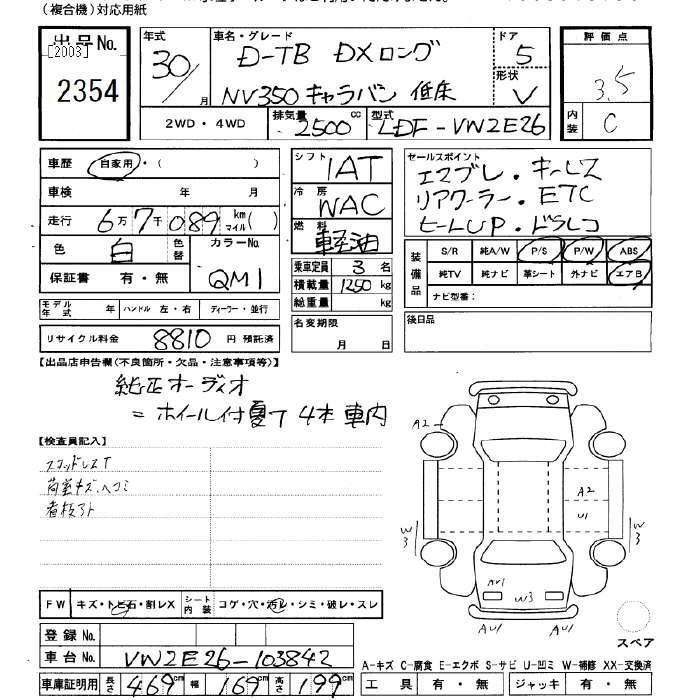 (複合機)対応用紙
出品No.
[2003]
2354
年式 30/月
車名・グレード D-TB DXロング
NV350 キャラバン 低床
ドア 5
形状 V
評価点 3.5
内装 C
2WD・4WD
排気量 2500cc
型式 LDF-VW2E26
車歴 自家用・( )
車検 年 月
走行 6万7千089 km マイル( )
色 白 色替
カラーNo. QM1
保証書 有・無
シフト 1AT
冷房 WAC
燃料 軽油
乗車定員 3名
積載量 1250kg
総重量 kg
セールスポイント
エマブレ・キーレス
リアクーラー・ETC
ヒールUP・ドラレコ
装備品 S/R 純A/W P/S P/W ABS
純TV 純ナビ 革シート 外ナビ エアB
ナビ型番:
モデル年式 年 ハンドル 左・右 ディーラー・並行
リサイクル料金 8810円 預託済
名変期限 月 日
後日品
【出品店申告欄(不良箇所・欠品・注意事項等)】
純正オーディオ
=ホイール付夏T 4本 車内
【検査員記入】
スタッドレスT
荷室キズ、ヘコミ
看板アト
A2
A2
U1
W3
W3
W3
AU1
AU1
FW キズ・トビ石・割レX
シート内装 コゲ・穴・汚レ・シミ・破レ・スレ
スペア
登録No.
車台No. VW2E26-103842
A-キズ C-腐食 E-エクボ S-サビ U-凹ミ W-補修 XX-交換済
車庫証明用 長さ 469cm 幅 169cm 高さ 199cm
工具 有・無 ジャッキ 有・無